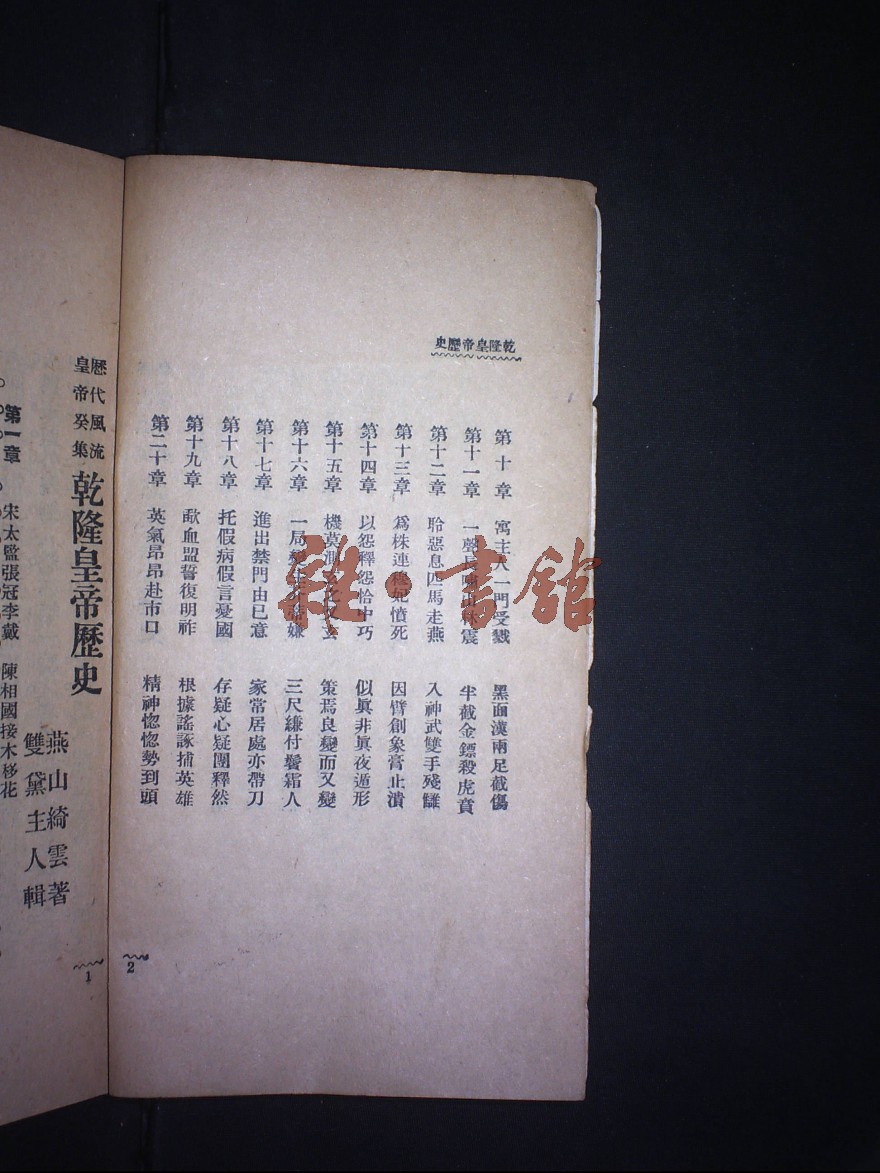 乾隆皇帝歷史
第十章 寓主人一門受戮 黑面漢兩足截傷
第十一章 一聲長嘯山林震 半截金鏢殺虎賁
第十二章 聆惡息匹馬走燕 入神武雙手殘讎
第十三章 爲株連穆妃憤死 因臂創象膏止潰
第十四章 以怨釋怨恰中巧 似眞非眞夜遁形
第十五章 機莫測玄之又玄 策焉良變而又變
第十六章 一局 嫌 三尺縑付鬢霜人
第十七章 進出禁門由已意 家常居處亦帶刀
第十八章 托假病假言憂國 存疑心疑團釋然
第十九章 歃血盟誓復明祚 根據謠諑捕英雄
第二十章 英氣昂昂赴市口 精神惚惚勢到頭
2
歷代風流
皇帝癸集
乾隆皇帝歷史
燕山綺雲著
雙黛主人輯
第一章 宋太監張冠李戴 陳相國接木移花
1
雜·書館